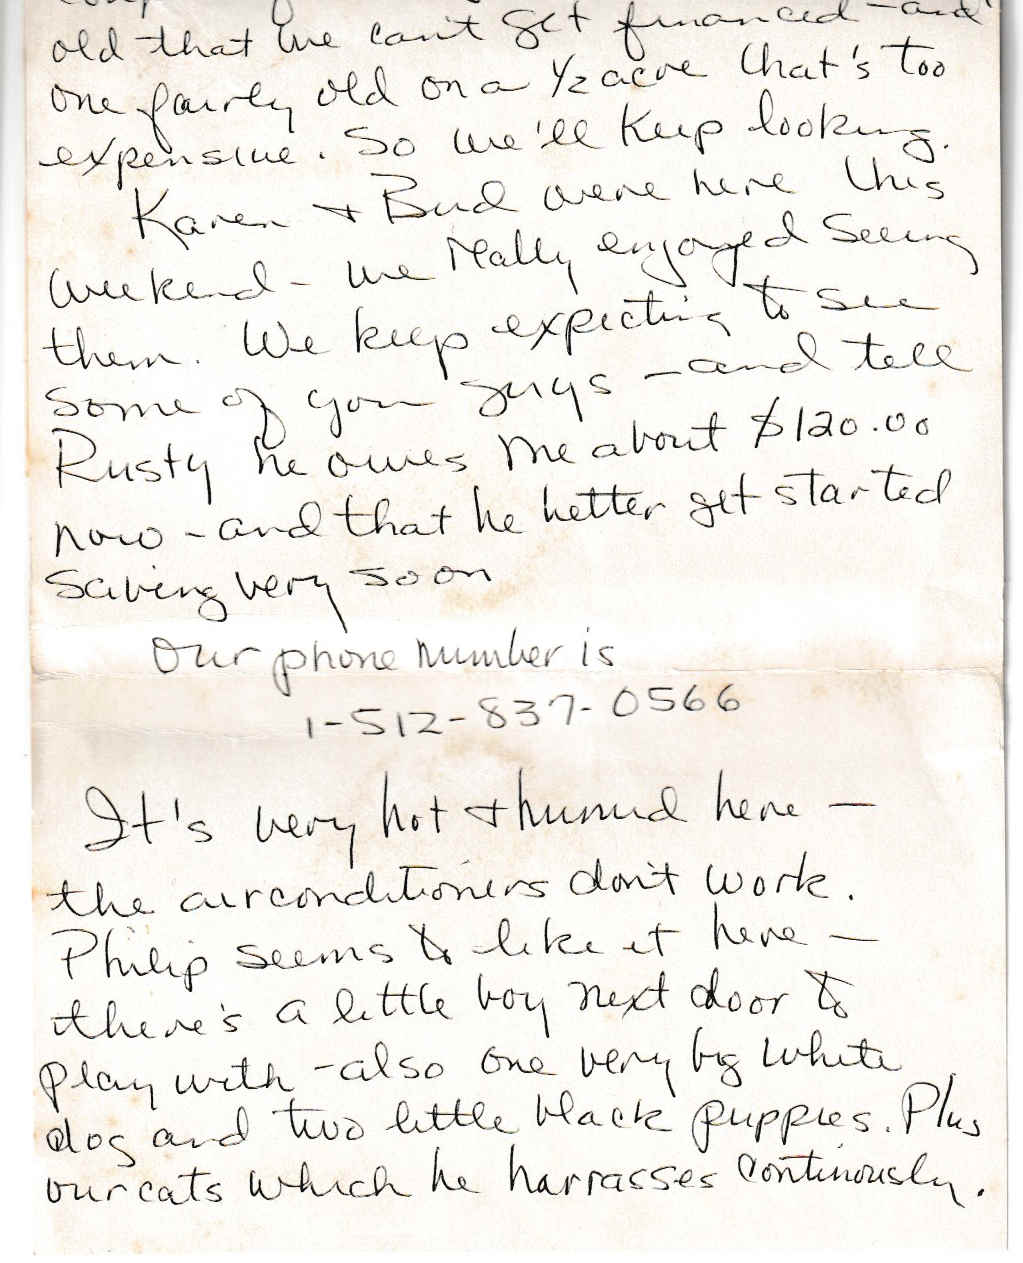 old that we can't get financed - and
one fairly old on a 1/2 acre that's too
expensive. So we'll keep looking.
Karen + Bud were here this
weekend - we really enjoyed seeing
them. We keep expecting to see
some of you guys - and tell
Rusty he owes me about $120.00
now - and that he better get started
saving very soon
Our phone number is
1-512-837-0566
It's very hot + humid here -
the airconditioners don't work.
Philip seems to like it here -
there's a little boy next door to
play with - also one very big white
dog and two little black puppies. Plus
our cats which he harrasses continously.